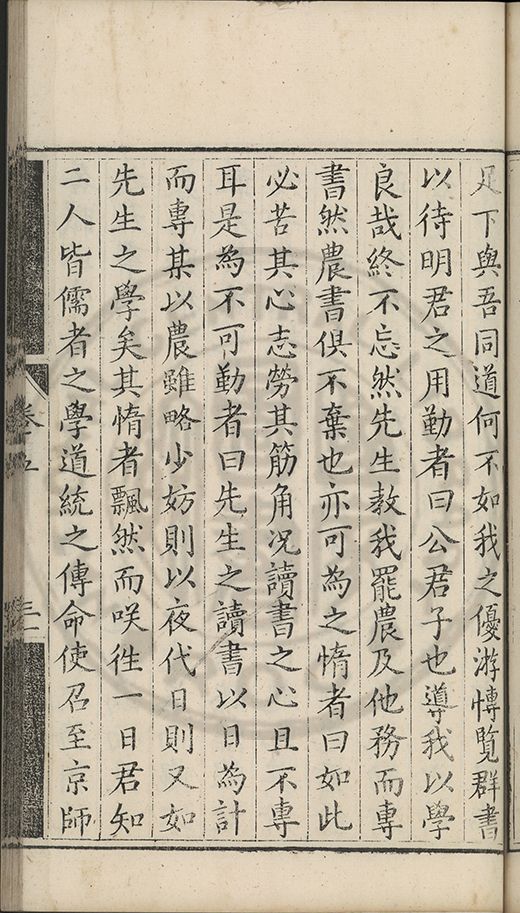 足下與吾同道何不如我之優游愽覽群書
以待明君之用勤者曰公君子也導我以學
良哉終不忘然先生教我罷農及他務而專
書然農書俱不棄也亦可為之惰者曰如此
必苦其心志勞其筋角况讀書之心且不專
耳是為不可勤者曰先生之讀書以日為計
而專某以農雖略少妨則以夜代日則又如
先生之學矣其惰者飄然而咲徃一日君知
二人皆儒者之學道統之傳命使召至京師
卷十五
三十一